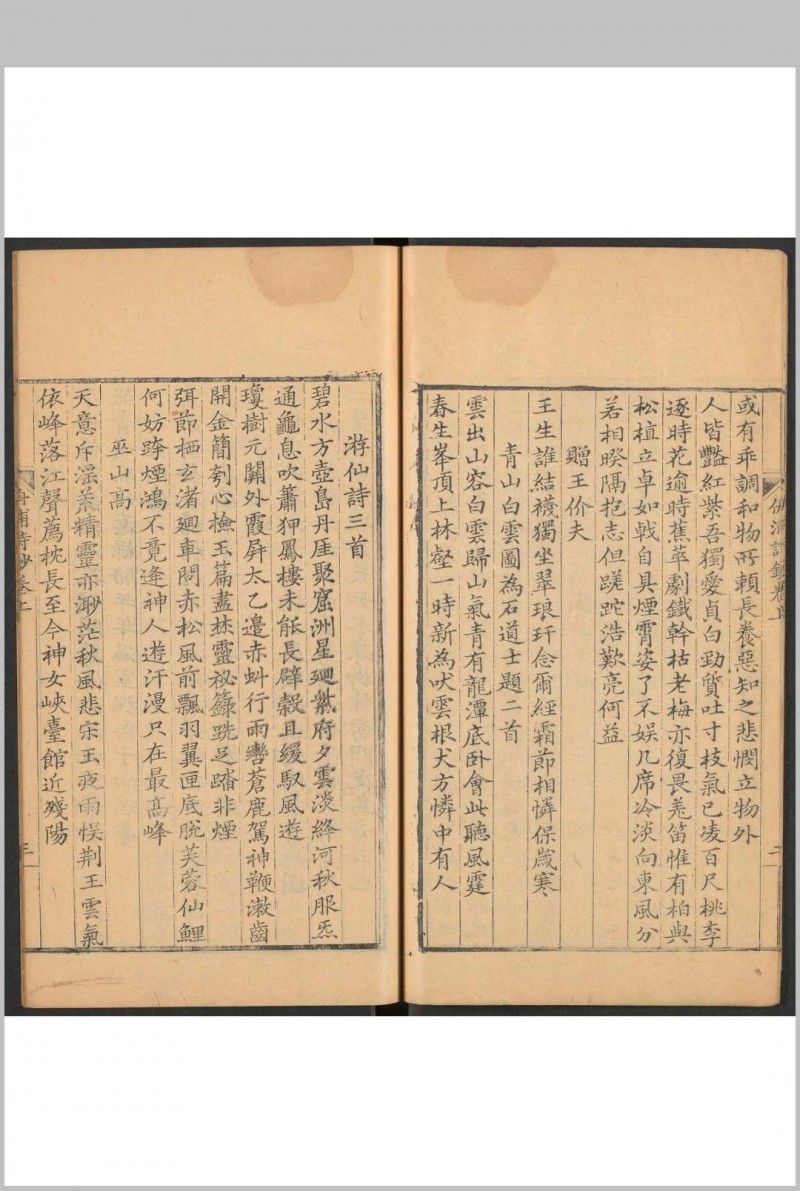 或有乖調和物所頼長養惡知之悲憫立物外
人皆豔紅紫吾獨愛貞白勁質吐寸枝氣已凌百尺桃李
逐時花逾時蕉萃劇鐵幹枯老梅亦復畏羌笛惟有柏與
松植立卓如戟自具煙霄姿了不娱几席冷淡向東風分
若相暌隔抱志但蹉跎浩歎亮何益
贈王价夫
王生誰結襪獨坐翠琅玕念爾經霜節相憐保歲寒
青山白雲圖為石道士題二首
雲出山容白雲歸山氣青有龍潭底卧會此聽風霆
春生峯頂上林壑一時新為吠雲根犬方憐中有人
二
游仙詩三首
碧水方壺島丹厓聚窟洲星廻紫府夕雲淡絳河秋服炁
通龜息吹簫狎鳳樓未能長辟穀且緩馭風遊
瓊樹元關外霞屏太乙邉赤虯行雨轡蒼鹿駕神鞭漱齒
開金簡刳心檢玉篇盡焚靈祕籙跣足踏非煙
弭節栖玄渚廻車閬赤松風前飄羽翼匣底脫芙蓉仙鯉
何妨跨煙鴻不竟逢神人遊汗漫只在最髙峰
巫山髙
天意斥淫荒精靈亦渺茫秋風悲宋玉夜雨悮荆王雲氣
依峰落江聲薦枕長至今神女峽臺館近殘陽
三